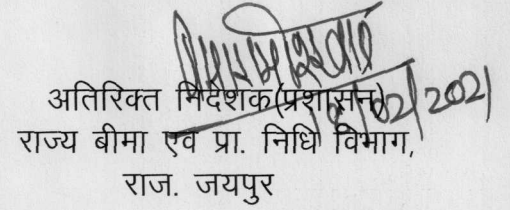 अतिरिक्त निदेशक(प्रशासन)
राज्य बीमा एवं प्रा. निधि विभाग,
राज. जयपुर